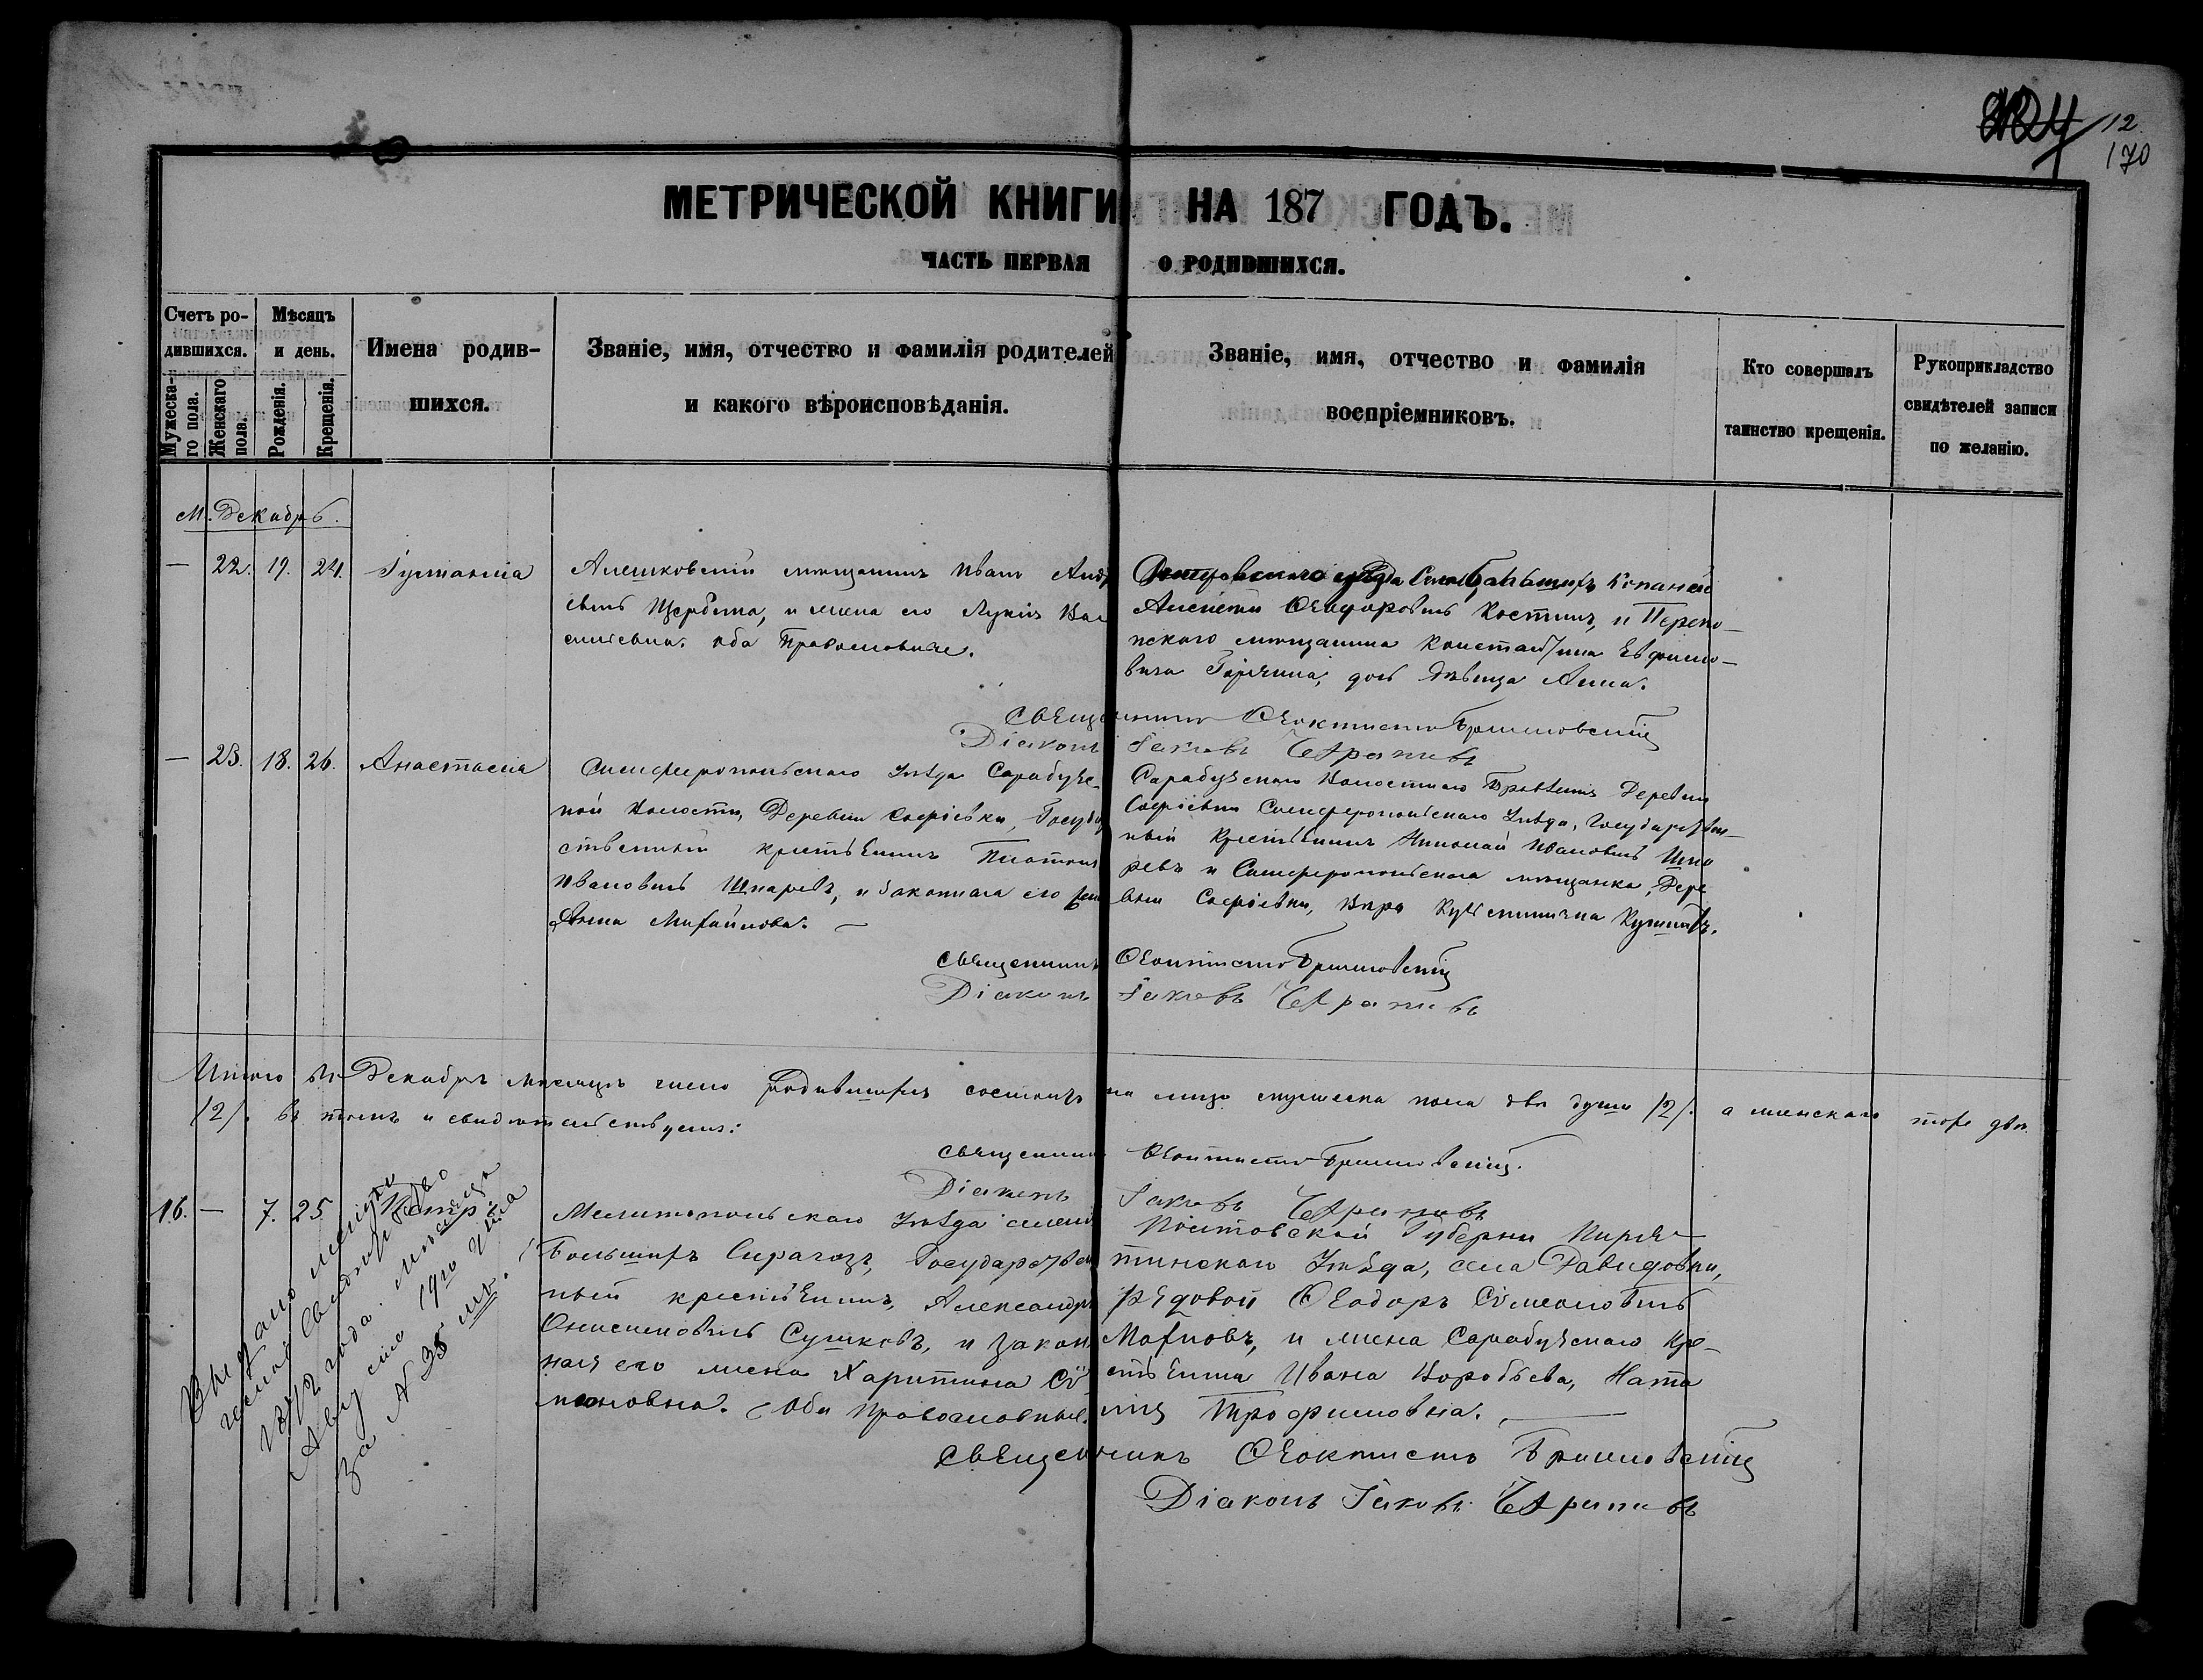 12
170
МЕТРИЧЕСКОЙ КНИГИ НА 187 ГОДЪ.
ЧАСТЬ ПЕРВАЯ О РОДИВШИХСЯ.
Счетъ ро-
дившихся.
Мужеска-
го пола.
Женскаго
пола.
Мѣсяцъ
и день.
Рожденія.
Крещенія.
Имена родив-
шихся.
Званіе, имя, отчество и фамилія родителей
и какого вѣроисповѣданія.
Званіе, имя, отчество и фамилія
воспріемниковъ.
Кто совершалъ
таинство крещенія.
Рукоприкладство
свидѣтелей записи
по желанію.
М. Декабрь.
— 22. 19. 24. Гуліанія
Алешковскій мѣщанинъ Иванъ Анд
евъ Щербина, и жена его Лукія Ва
сильевна. оба Православные.
уѣзда Села Копаней
Алексѣй Ѳеодоровъ Костинъ, и Переко-
пскаго мѣщанина Константина Евфимо-
вича Горячина, дочь дѣвица Анна.
Священникъ Ѳеоктистъ
Діаконъ Іаковъ
— 23. 18. 26. Анастасія
Симферопольскаго Уѣзда Сарабузс-
кой Волости, Деревни Софіевки, Госуда
ственный крестьянинъ Платонъ
Ивановичъ Шпаревъ, и законная его жен
Анна Михайлова. —
Сарабузскаго Волостнаго Правленія Деревни
Софіевки Симферопольскаго Уѣзда, Государствен-
ный Крестьянинъ Николай Ивановичъ Шпа
ревъ и Симферопольская мѣщанка, Дере
вни Софіевки, Вѣра
Священникъ Ѳеоктистъ
Діаконъ Іаковъ
Итого въ Декабрѣ мѣсяцѣ число родившихся состоитъ на лицо мужеска пола двѣ души /2/. а женскаго тоже двѣ
/2/. въ томъ и свидѣтельствуемъ:
Священникъ Ѳеоктистъ
Діаконъ Іаковъ
16. — 7. 25 Петръ
Мелитопольскаго Уѣзда селенія
Большихъ Сирагозъ, Государствен
ный крестьянинъ, Александръ
Онисимовичъ Сушковъ, и закон
ная его жена Харитина Сѵ
меоновна. Оба Православные.
Полтовской Губерни Пиря-
тинскаго Уѣзда, села Давидовки,
рядовой Ѳеодоръ Сѵмеоновичъ
Махновъ, и жена Сарабузскаго кре-
стьянина Ивана Воробьева, Ната
лія Трофимовна. —
Священникъ Ѳеоктистъ
Діаконъ Іаковъ
Выдано метри
ческое свидѣтельство
1872 года. мѣсяца
Августа 19го числа
за № 35 мъ.